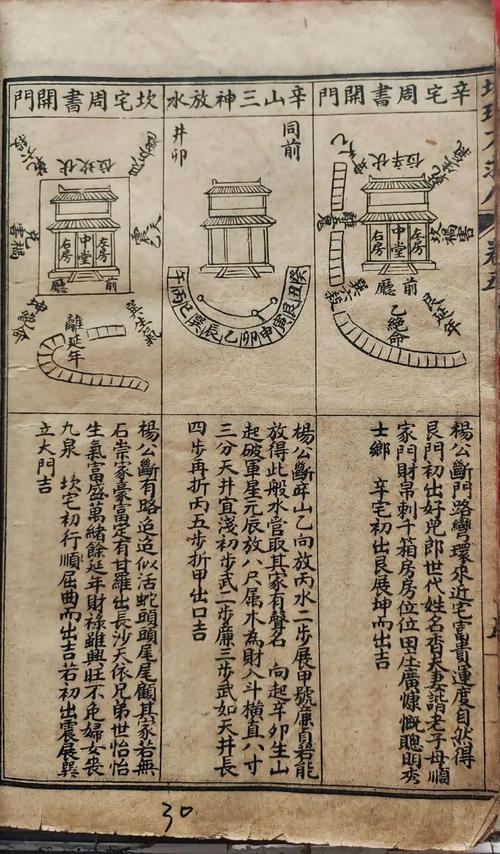 辛宅周書開門
辛山三神放水
坎宅周書開門
辛伏位
禍害
左房
中堂
右房
前廳
艮延年
乙絕命
同前
井卯
癸丑艮寅甲卯乙辰巽巳丙午
坎伏位
震天
左房
中堂
右房
前廳
兌禍害
坤絕命
離延年
巽生氣
楊公斷門路彎環來近宅富貴運度自然得
艮門初出好兒郎世代姓名香夫妻諧老子母順
家門財帛刺千箱房房位位田庄廣慷慨聰明秀
士鄉 辛宅初出艮展坤而出吉
楊公斷辛山乙向放丙水二步展甲號廉貞若能
放得此般水官取其家有聲名 向起辛卯生山
起破軍星元辰放八尺属木為財入斗橫直八寸
三分天井宜淺初步武二步廉三步武如天井長
四步再折丙五步折甲出口吉
楊公斷有路迢迢似活蛇頭頭尾尾顧其家若無
石崇家豪富定有甘羅出長沙天依兄弟世怡怡
生氣富盛萬緒餘延年財祿雖興旺不免婦女喪
九泉 坎宅初行順屈曲而出吉若初出震展巽
立大門吉
30